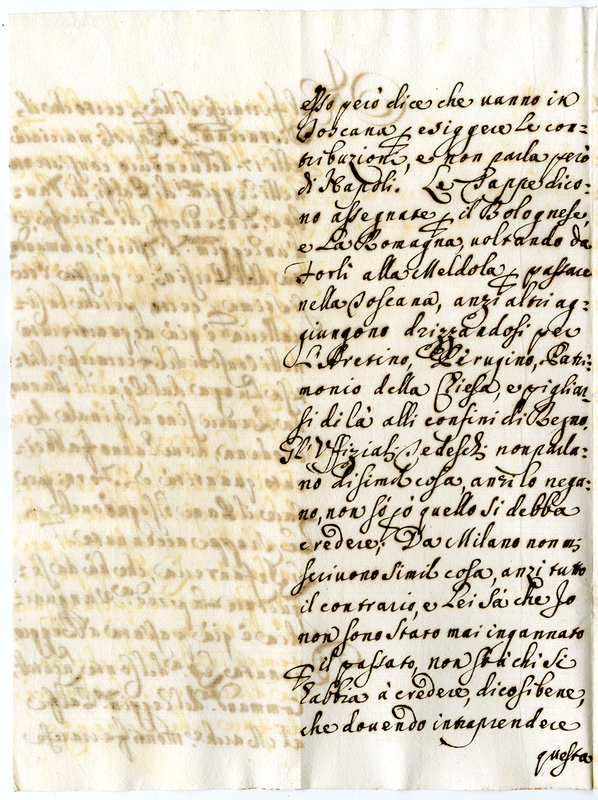 esso però dice che vanno in
Toscana p esiggere le con=
tribuzioni, e non parla però
di Napoli. Le Tappe dico=
no assegnate p il Bolognese,
e La Romagna, voltando da
Forlì alla Meldola p passare
nella Toscana, anzi altri ag=
giungono drizzandosi per
L'Aretino, Perugino, Patri=
monio della Chiesa, e pigliar=
si di là alli confini di Regno.
Gl'Uffiziali Tedeschi non parla=
no di simil cosa, anzi lo nega=
no, non sò io quello si debba
credere; Da Milano non mi
scrivono simil cosa, anzi tutto
il contrario, e Lei sà che Io
non sono stato mai ingannato
p il passato, non sò a chi si
habbia à credere, dico sibene,
che dovendo intraprendere
questa